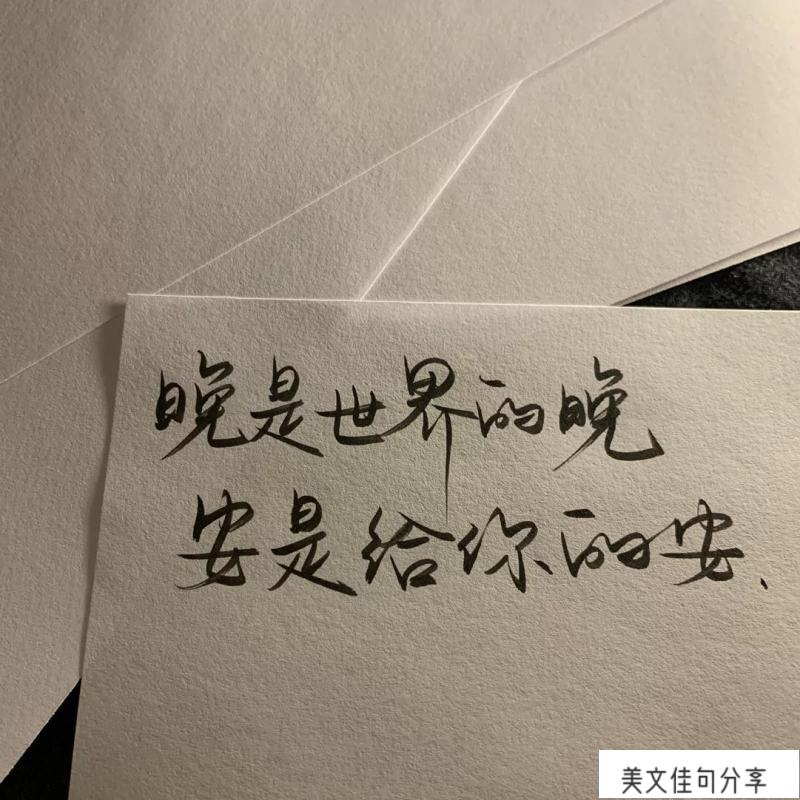 晚是世界的晚
安是给你的安、
美文佳句分享